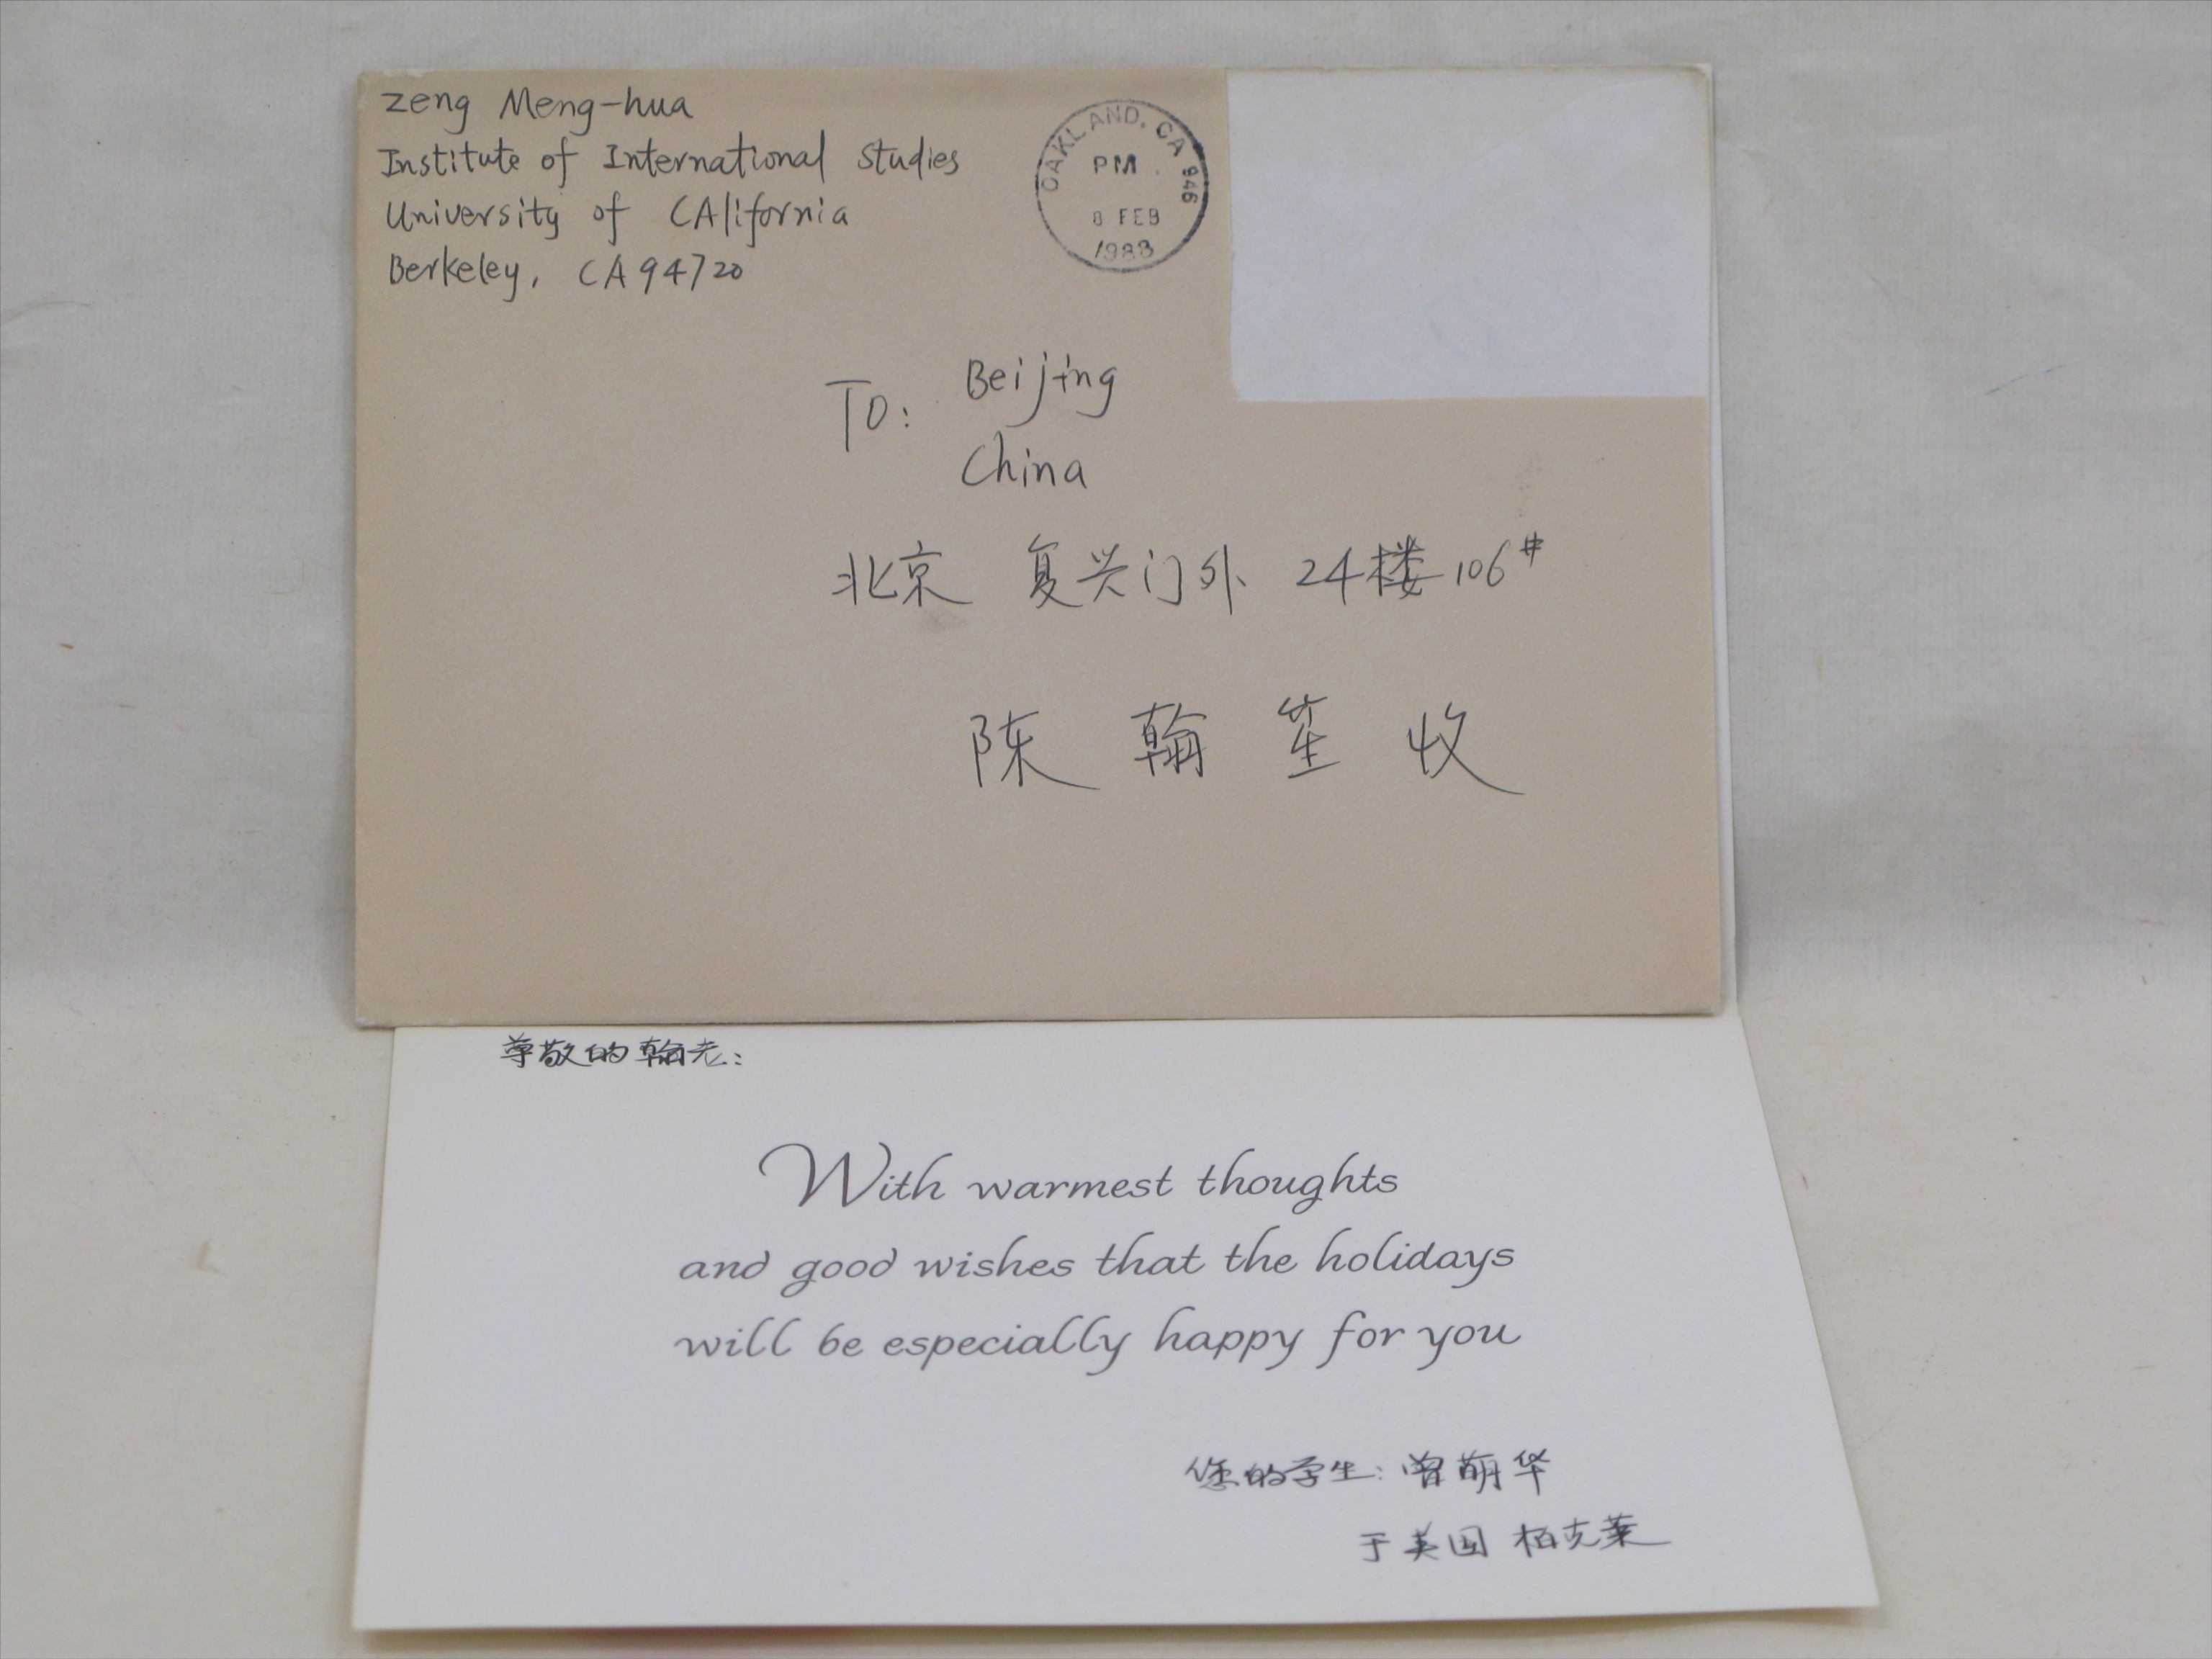 Zeng Meng-hua
Institute of International Studies
University of CAlifornia
Berkeley, CA 94720
OAKLAND, CA 946
PM
8 FEB
1988
To: Beijing
China
北京 复兴门外 24楼106#
陈翰笙 收
尊敬的翰老:
With warmest thoughts
and good wishes that the holidays
will be especially happy for you
您的学生: 曾萌华
于美国 柏克莱